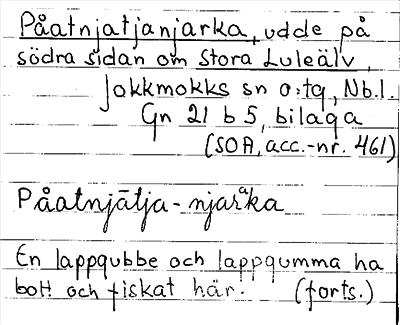 Påatnjatjanjarka, udde på
södra sidan om Stora Luleälv,
Jokkmokks sn o. tg, Nb.l.
Gn 21 b 5, bilaga
(SOA, acc.-nr. 461)
Påatnjātja-njarᵃka
En lappgubbe och lappgumma ha
bott och fiskat här. (forts.)